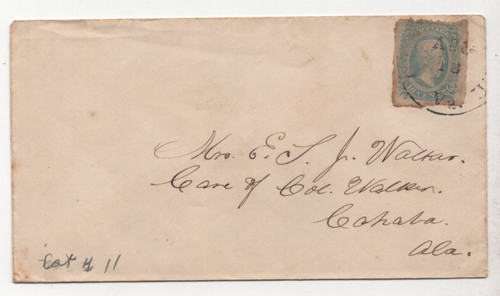 Mrs. E. S. Jr. Walker.
Care of Col. Walker.
Cahaba.
Ala.
Lot # 11